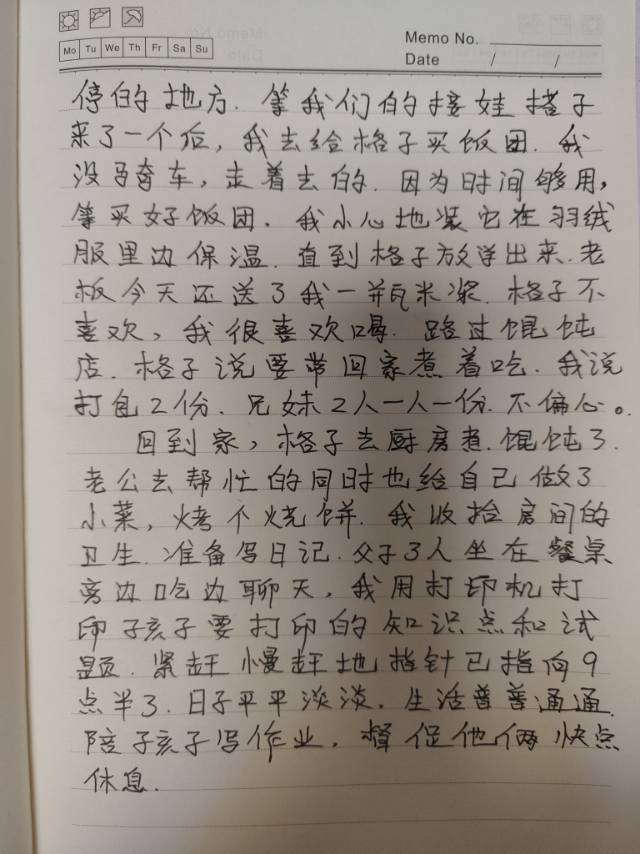 Mo Tu We Th Fr Sa Su
Memo No.
Date / /
停的地方.等我们的接娃搭子
来了一个后,我去给格子买饭团.我
没骑车,走着去的.因为时间够用,
等买好饭团.我小心地装它在羽绒
服里边保温.直到格子放学出来.老
板今天还送了我一瓶米浆.格子不
喜欢,我很喜欢喝.路过馄饨
店.格子说要带回家煮着吃.我说
打包2份.兄妹2人一人一份.不偏心。
回到家,格子去厨房煮.馄饨了.
老公去帮忙的同时也给自己做了
小菜,烤个烧饼.我收拾房间的
卫生.准备写日记.父子3人坐在餐桌
旁边吃边聊天,我用打印机打
印孩子要打印的知识点和试
题.紧赶慢赶地指针已指向9
点半了.日子平平淡淡.生活普普通通.
陪孩子写作业.督促他俩快点
休息.